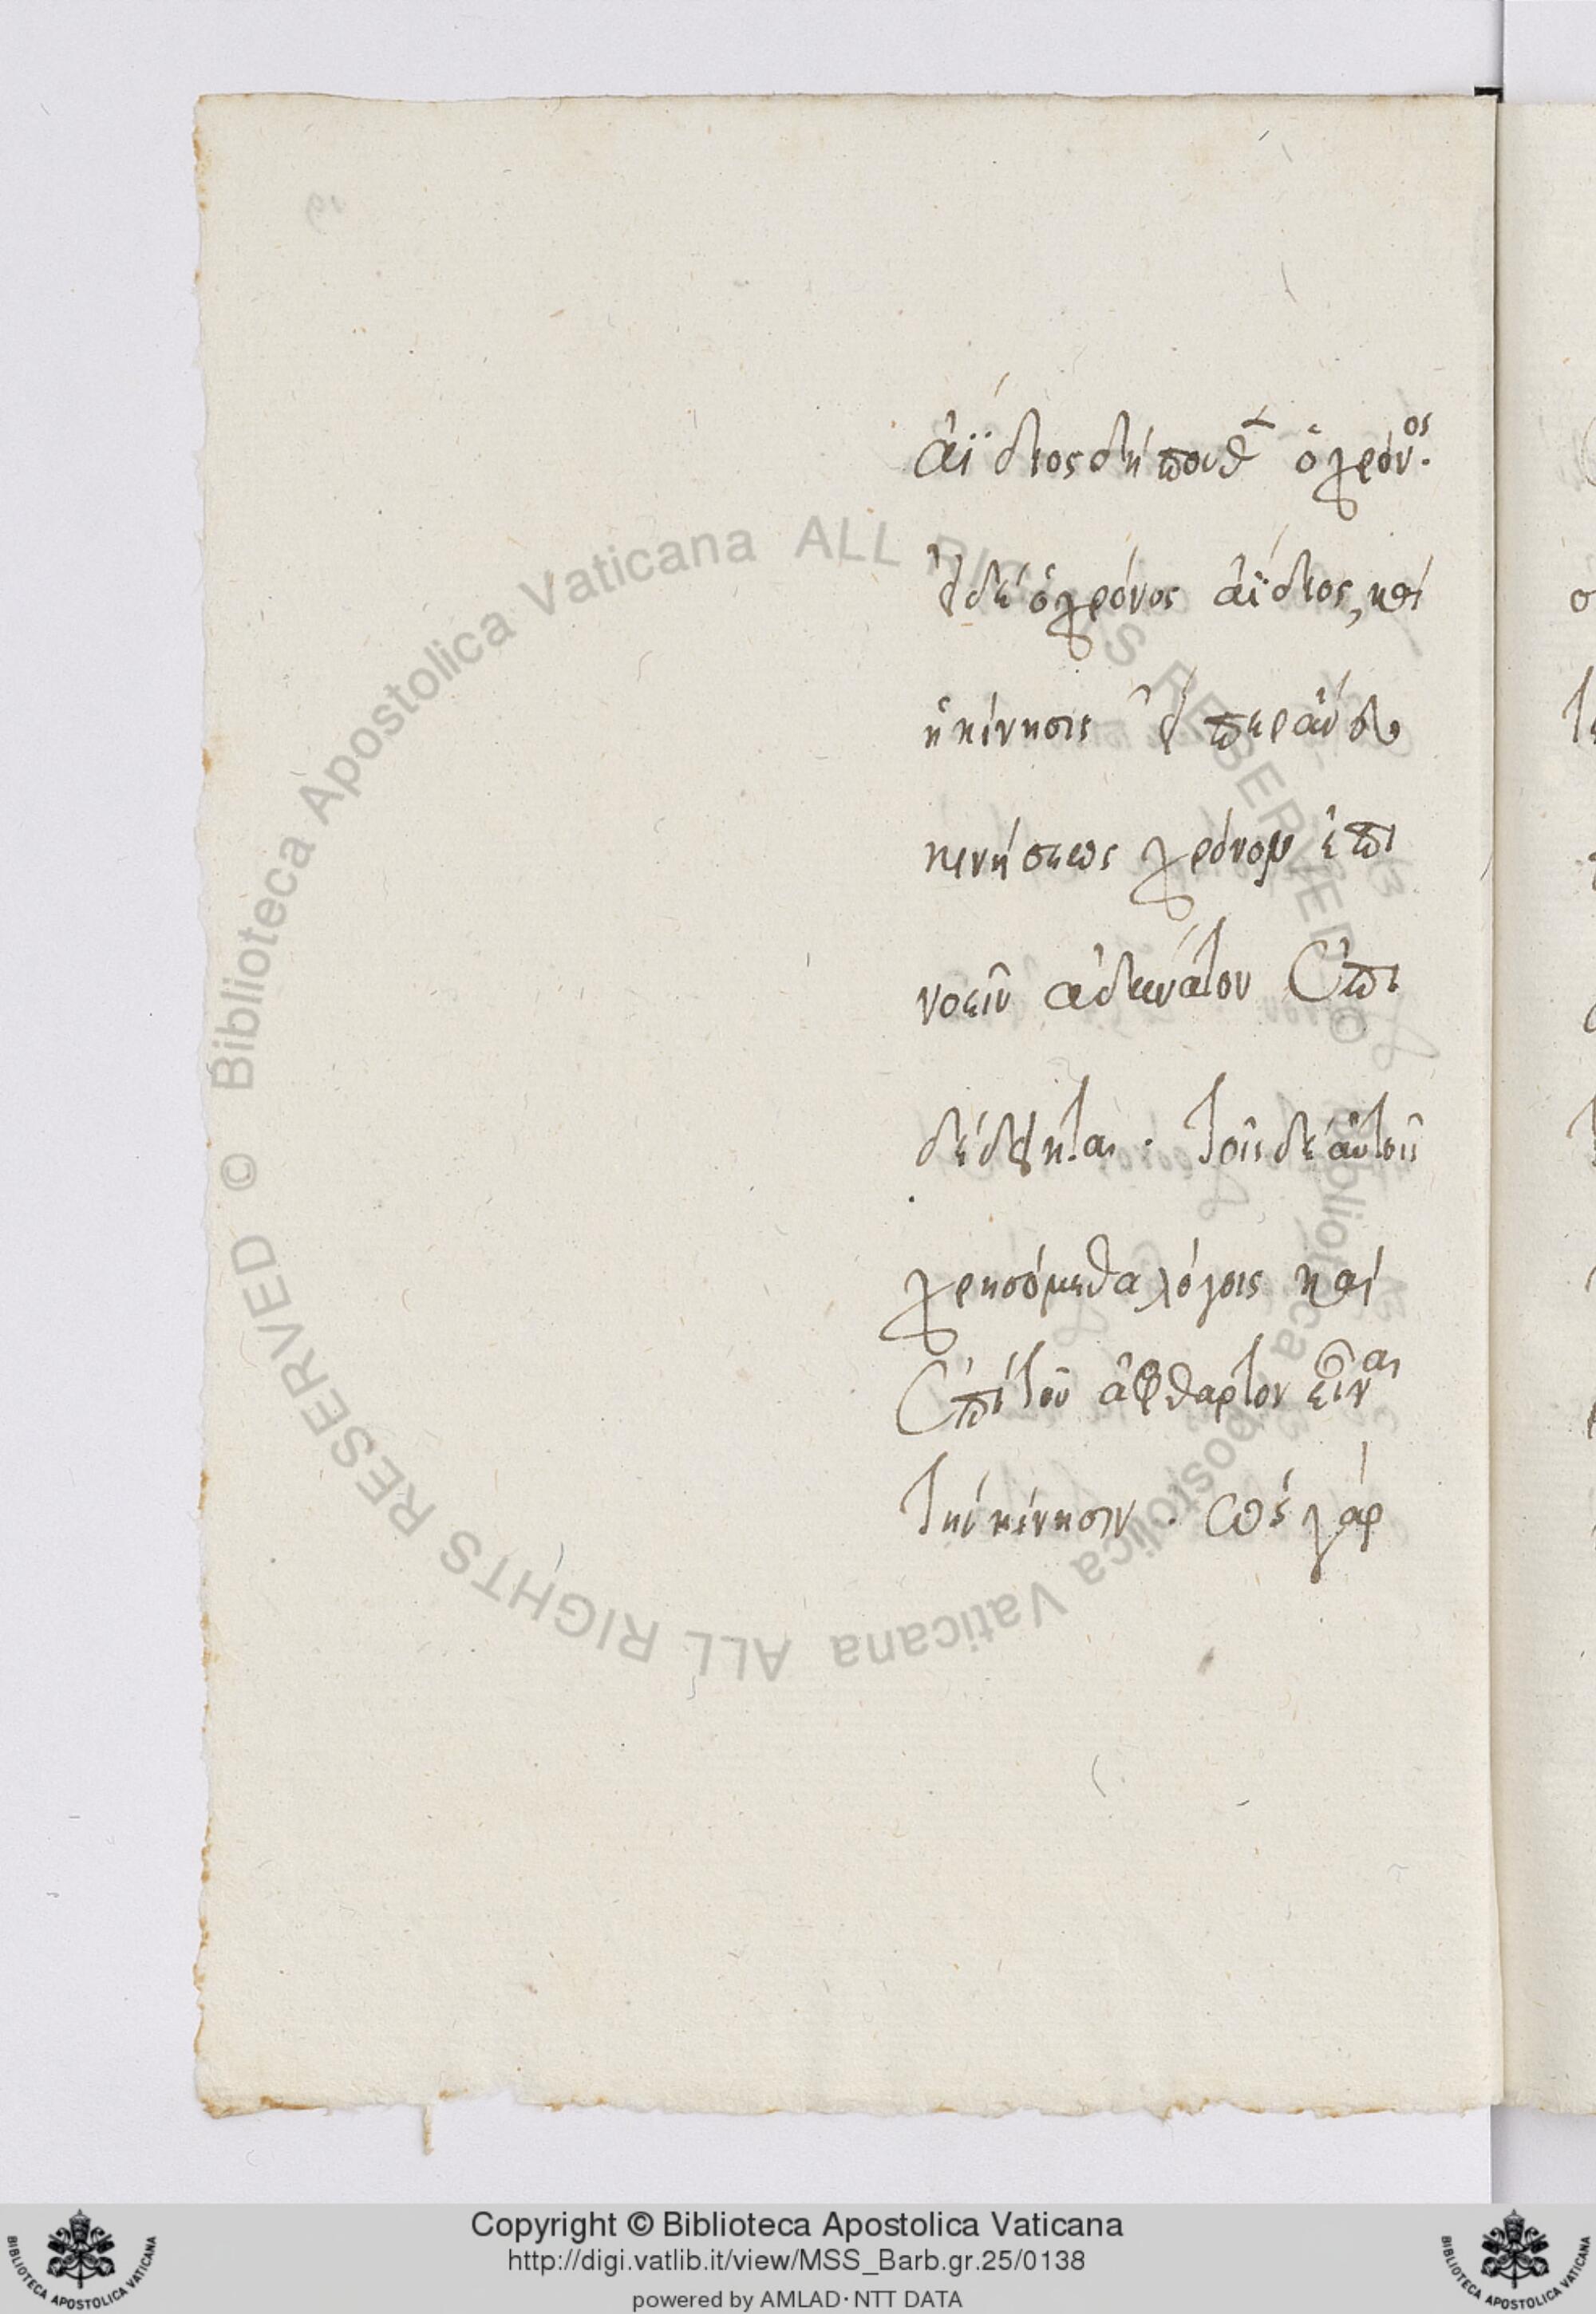 ἀΐδιος δήπουθεν ὁ χρόνος.
εἰ δὲ ὁ χρόνος ἀΐδιος, καὶ
ἡ κίνησις εἴπερ ἄνευ
κινήσεως χρόνον ἐπι
νοεῖν ἀδύνατον ἐπι
δέδεικται. τοῖς δὲ αὐτοῖς
χρησόμεθα λόγοις καὶ
ἐπὶ τοῦ ἄφθαρτον εἶναι
τὴν κίνησιν. ὡς γὰρ
© Biblioteca Apostolica Vaticana ALL RIGHTS RESERVED © Biblioteca Apostolica Vaticana ALL RIGHTS RESERVED
Copyright © Biblioteca Apostolica Vaticana
http://digi.vatlib.it/view/MSS_Barb.gr.25/0138
powered by AMLAD · NTT DATA
BIBLIOTECA APOSTOLICA VATICANA
BIBLIOTECA APOSTOLICA VATICANA